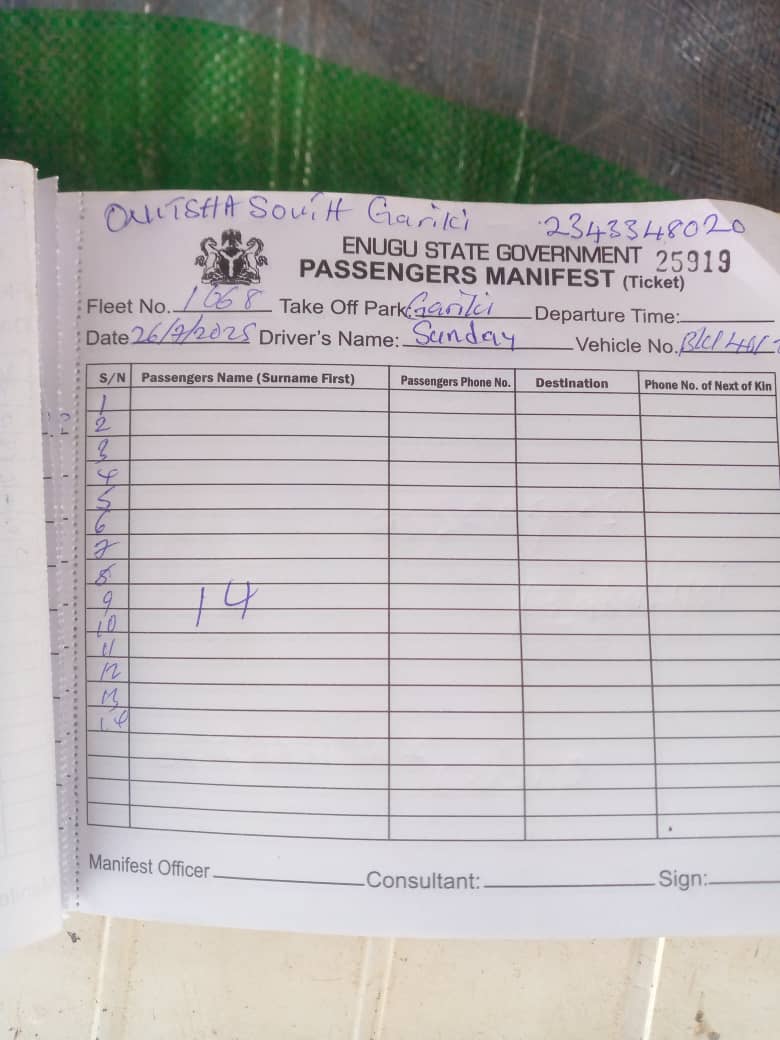 ONITSHA SOUTH Gariki 2343348020
ENUGU STATE GOVERNMENT 25919
PASSENGERS MANIFEST (Ticket)
Fleet No. 1668 Take Off Park: Gariki Departure Time:
Date 26/7/2025 Driver's Name: Sunday Vehicle No.
S/N Passengers Name (Surname First) Passengers Phone No. Destination Phone No. of Next of Kin
1
2
3
4
5
6
7
8
9
14
10
11
12
13
14
Manifest Officer Consultant: Sign: